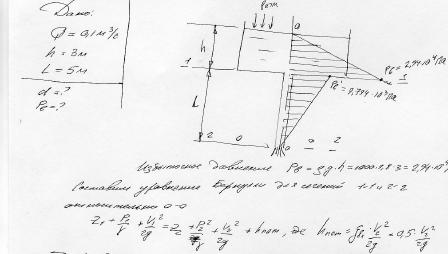 Дано:
Q = 0,1 м³/с
h = 3м
L = 5м
d = ?
Pв = ?
Pатм
a
h
Pв = 2,94·10⁴ Па
1
1
L
2
0
a
0
2
Избыточное давление Pв = ρg·h = 1000·9,8·3 = 2,94·10⁴
Составим уравнение Бернулли для сечений 1-1 и 2-2
относительно 0-0
z₁ + P₁/γ + V₁²/2g = z₂ + P₂/γ + V₂²/2g + hпот, где hпот = ξвх V₂²/2g = 0,5·V₂²/2g